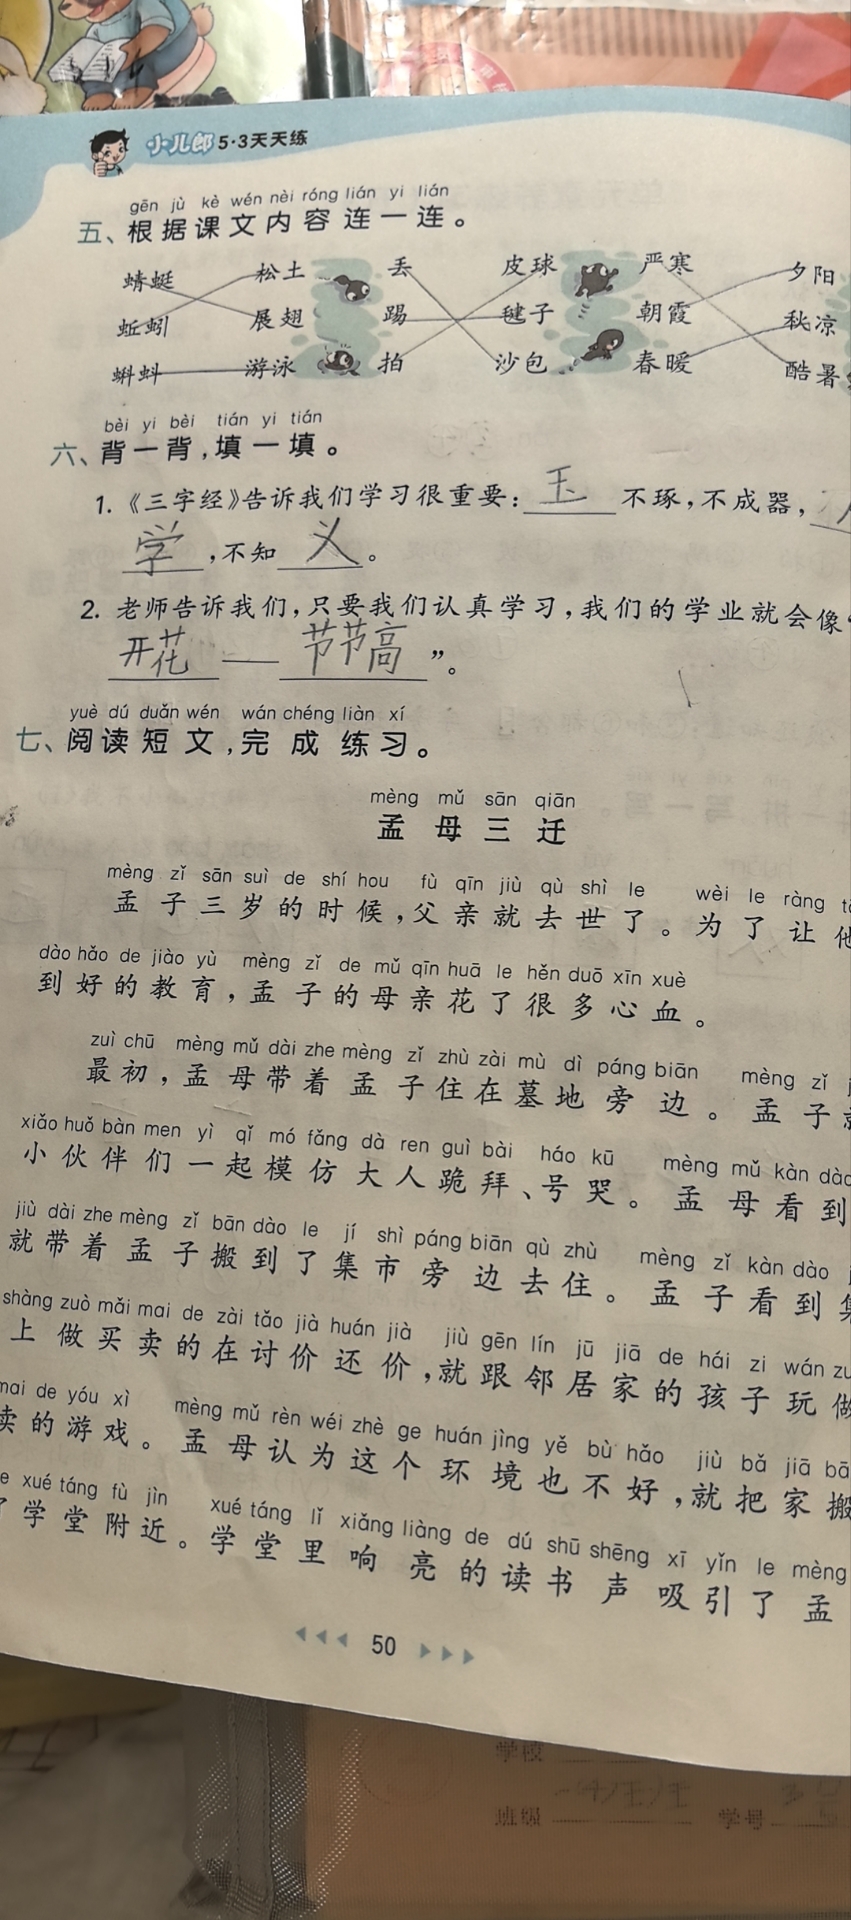 小儿郎 5·3天天练
gēn jù kè wén nèi róng lián yi lián
五、根据课文内容连一连。
蜻蜓 松土 丢 皮球 严寒 夕阳
蚯蚓 展翅 踢 毽子 朝霞 秋凉
蝌蚪 游泳 拍 沙包 春暖 酷暑
bèi yi bèi tián yi tián
六、背一背,填一填。
1.《三字经》告诉我们学习很重要:玉不琢,不成器,
学,不知义。
2. 老师告诉我们,只要我们认真学习,我们的学业就会像“
开花——节节高”。
yuè dú duǎn wén wán chéng liàn xí
七、阅读短文,完成练习。
mèng mǔ sān qiān
孟母三迁
mèng zǐ sān suì de shí hou fù qīn jiù qù shì le wèi le ràng
孟子三岁的时候,父亲就去世了。为了让他
dào hǎo de jiào yù mèng zǐ de mǔ qīn huā le hěn duō xīn xuè
到好的教育,孟子的母亲花了很多心血。
zuì chū mèng mǔ dài zhe mèng zǐ zhù zài mù dì páng biān mèng zǐ
最初,孟母带着孟子住在墓地旁边。孟子
xiǎo huǒ bàn men yì qǐ mó fǎng dà ren guì bài háo kū mèng mǔ kàn dào
小伙伴们一起模仿大人跪拜、号哭。孟母看到
jiù dài zhe mèng zǐ bān dào le jí shì páng biān qù zhù mèng zǐ kàn dào
就带着孟子搬到了集市旁边去住。孟子看到集
shàng zuò mǎi mai de zài tǎo jià huán jià jiù gēn lín jū jiā de hái zi wán zu
上做买卖的在讨价还价,就跟邻居家的孩子玩做
mai de yóu xì mèng mǔ rèn wéi zhè ge huán jìng yě bù hǎo jiù bǎ jiā bā
卖的游戏。孟母认为这个环境也不好,就把家搬
e xué táng fù jìn xué táng lǐ xiǎng liàng de dú shū shēng xī yǐn le mèng
了学堂附近。学堂里响亮的读书声吸引了孟
50
学校
班级 学号